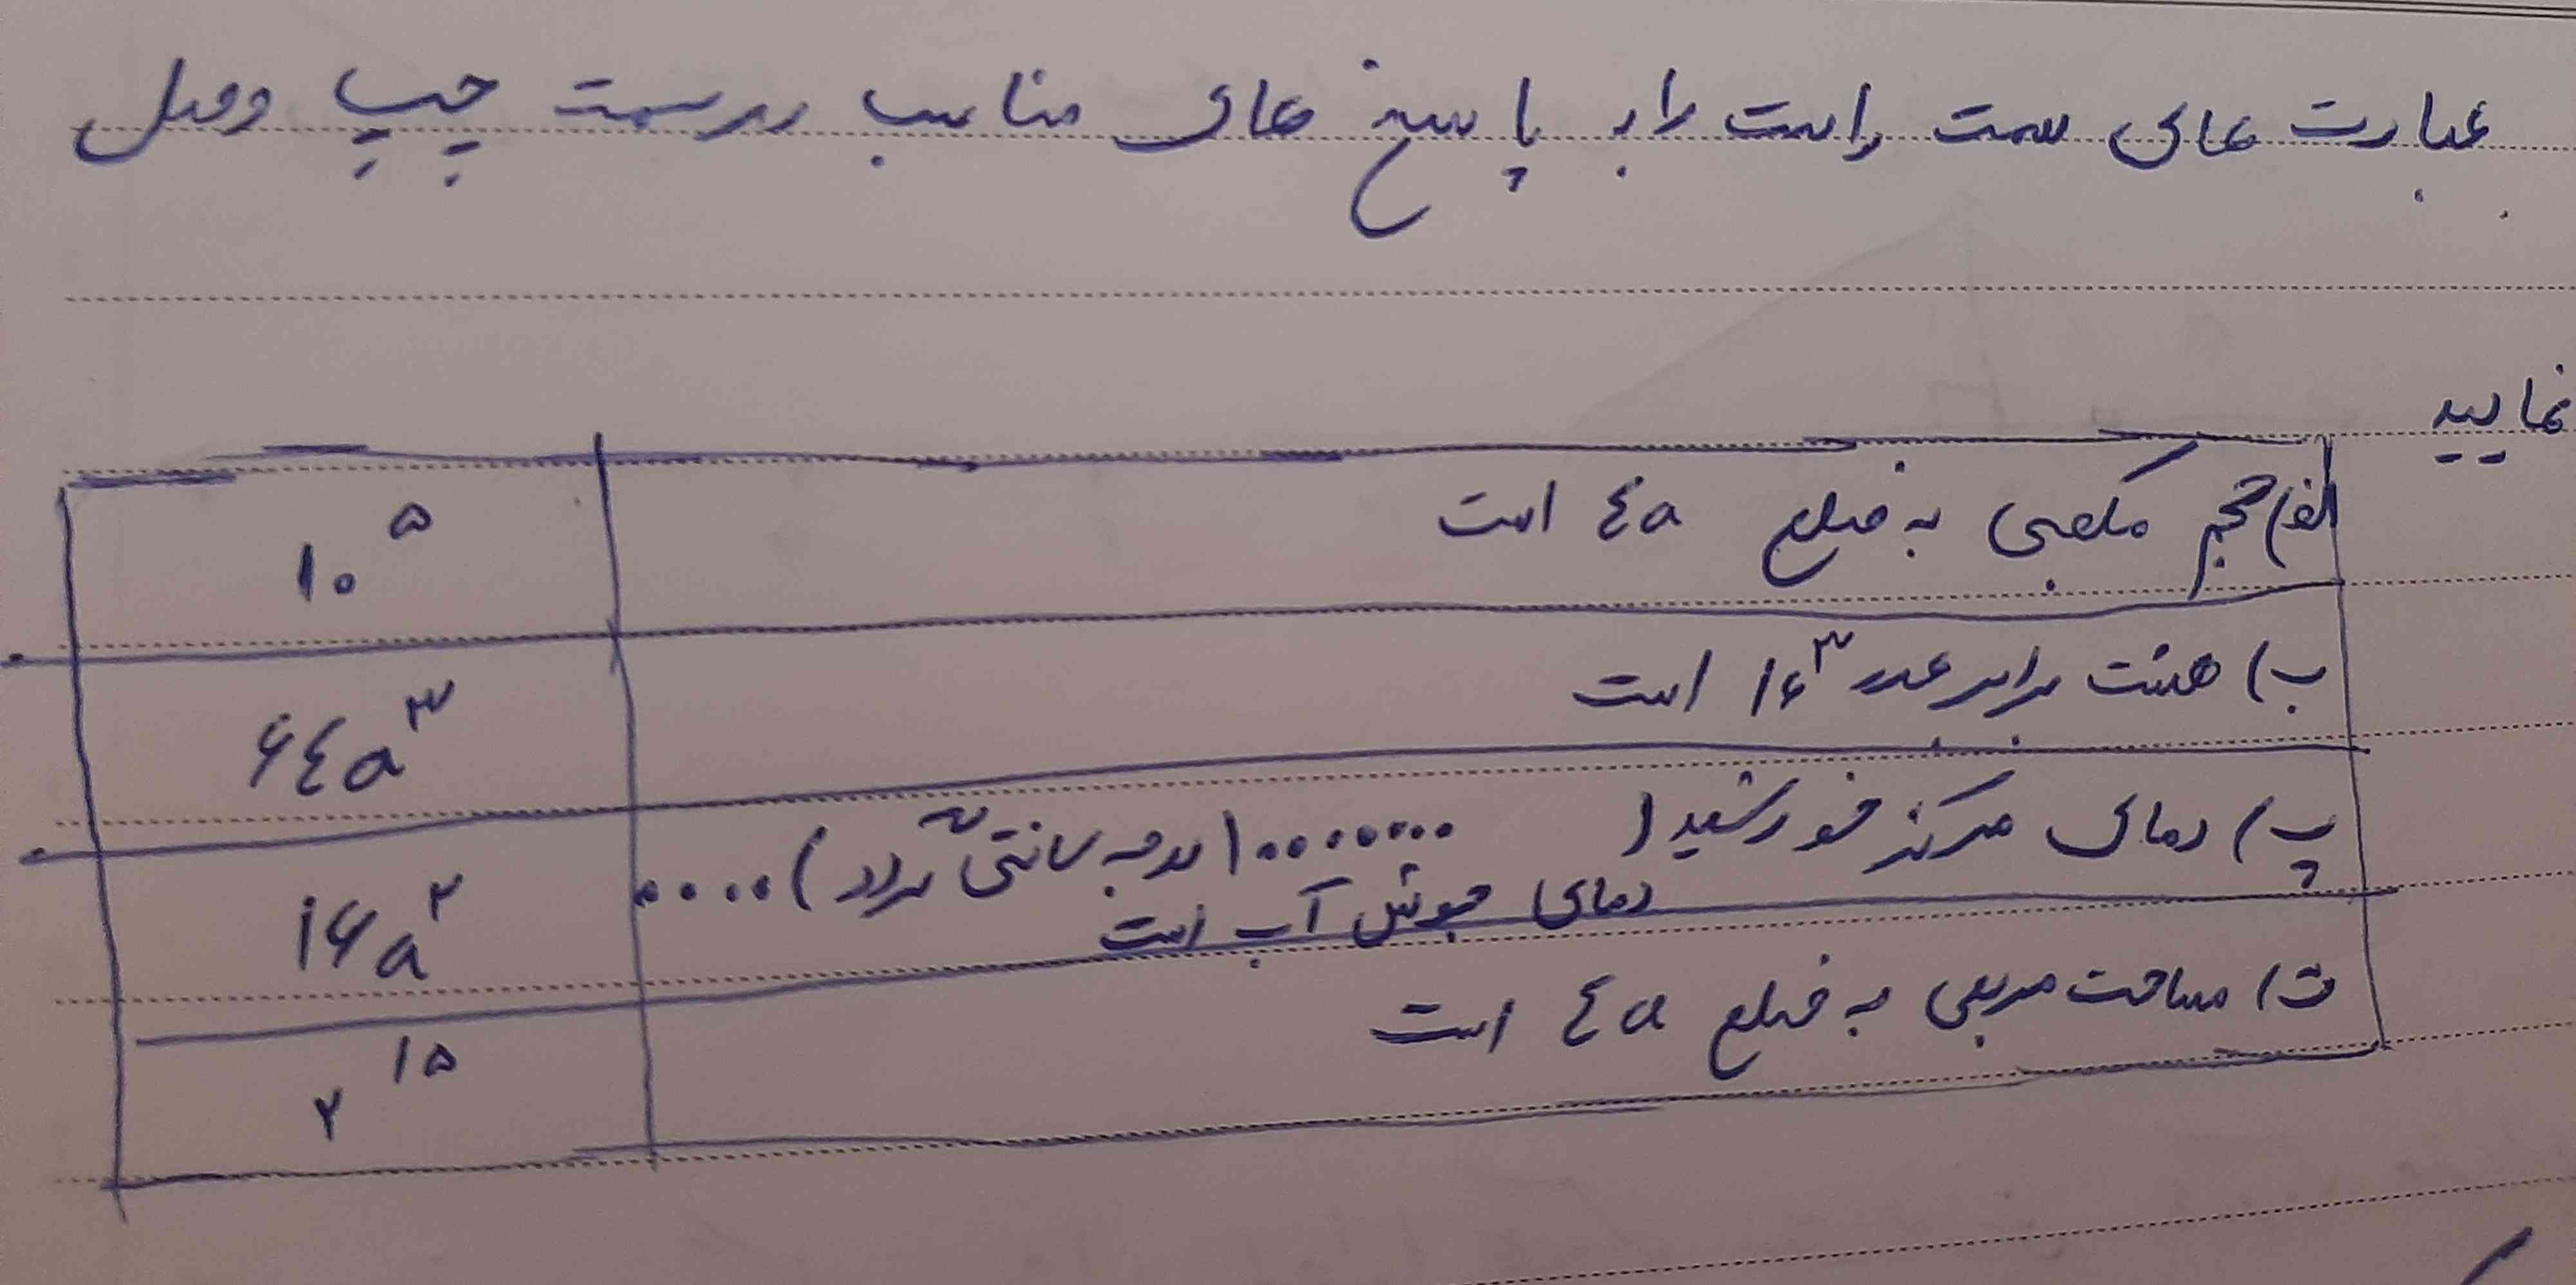 عبارت های سمت راست را به پاسخ های مناسب در سمت چپ وصل
نمایید
الف) حجم مکعبی به ضلع ٤a است
۱۰^۵
ب) هشت برابر عدد ۱۶^۳ است
۶٤a^۳
پ) دمای مرکز خورشید (۱۰۰۰۰۰۰۰ درجه سانتی گراد) ....
دمای جوش آب است
۱۶a^۲
ت) مساحت مربعی به ضلع ٤a است
۲^۱۵